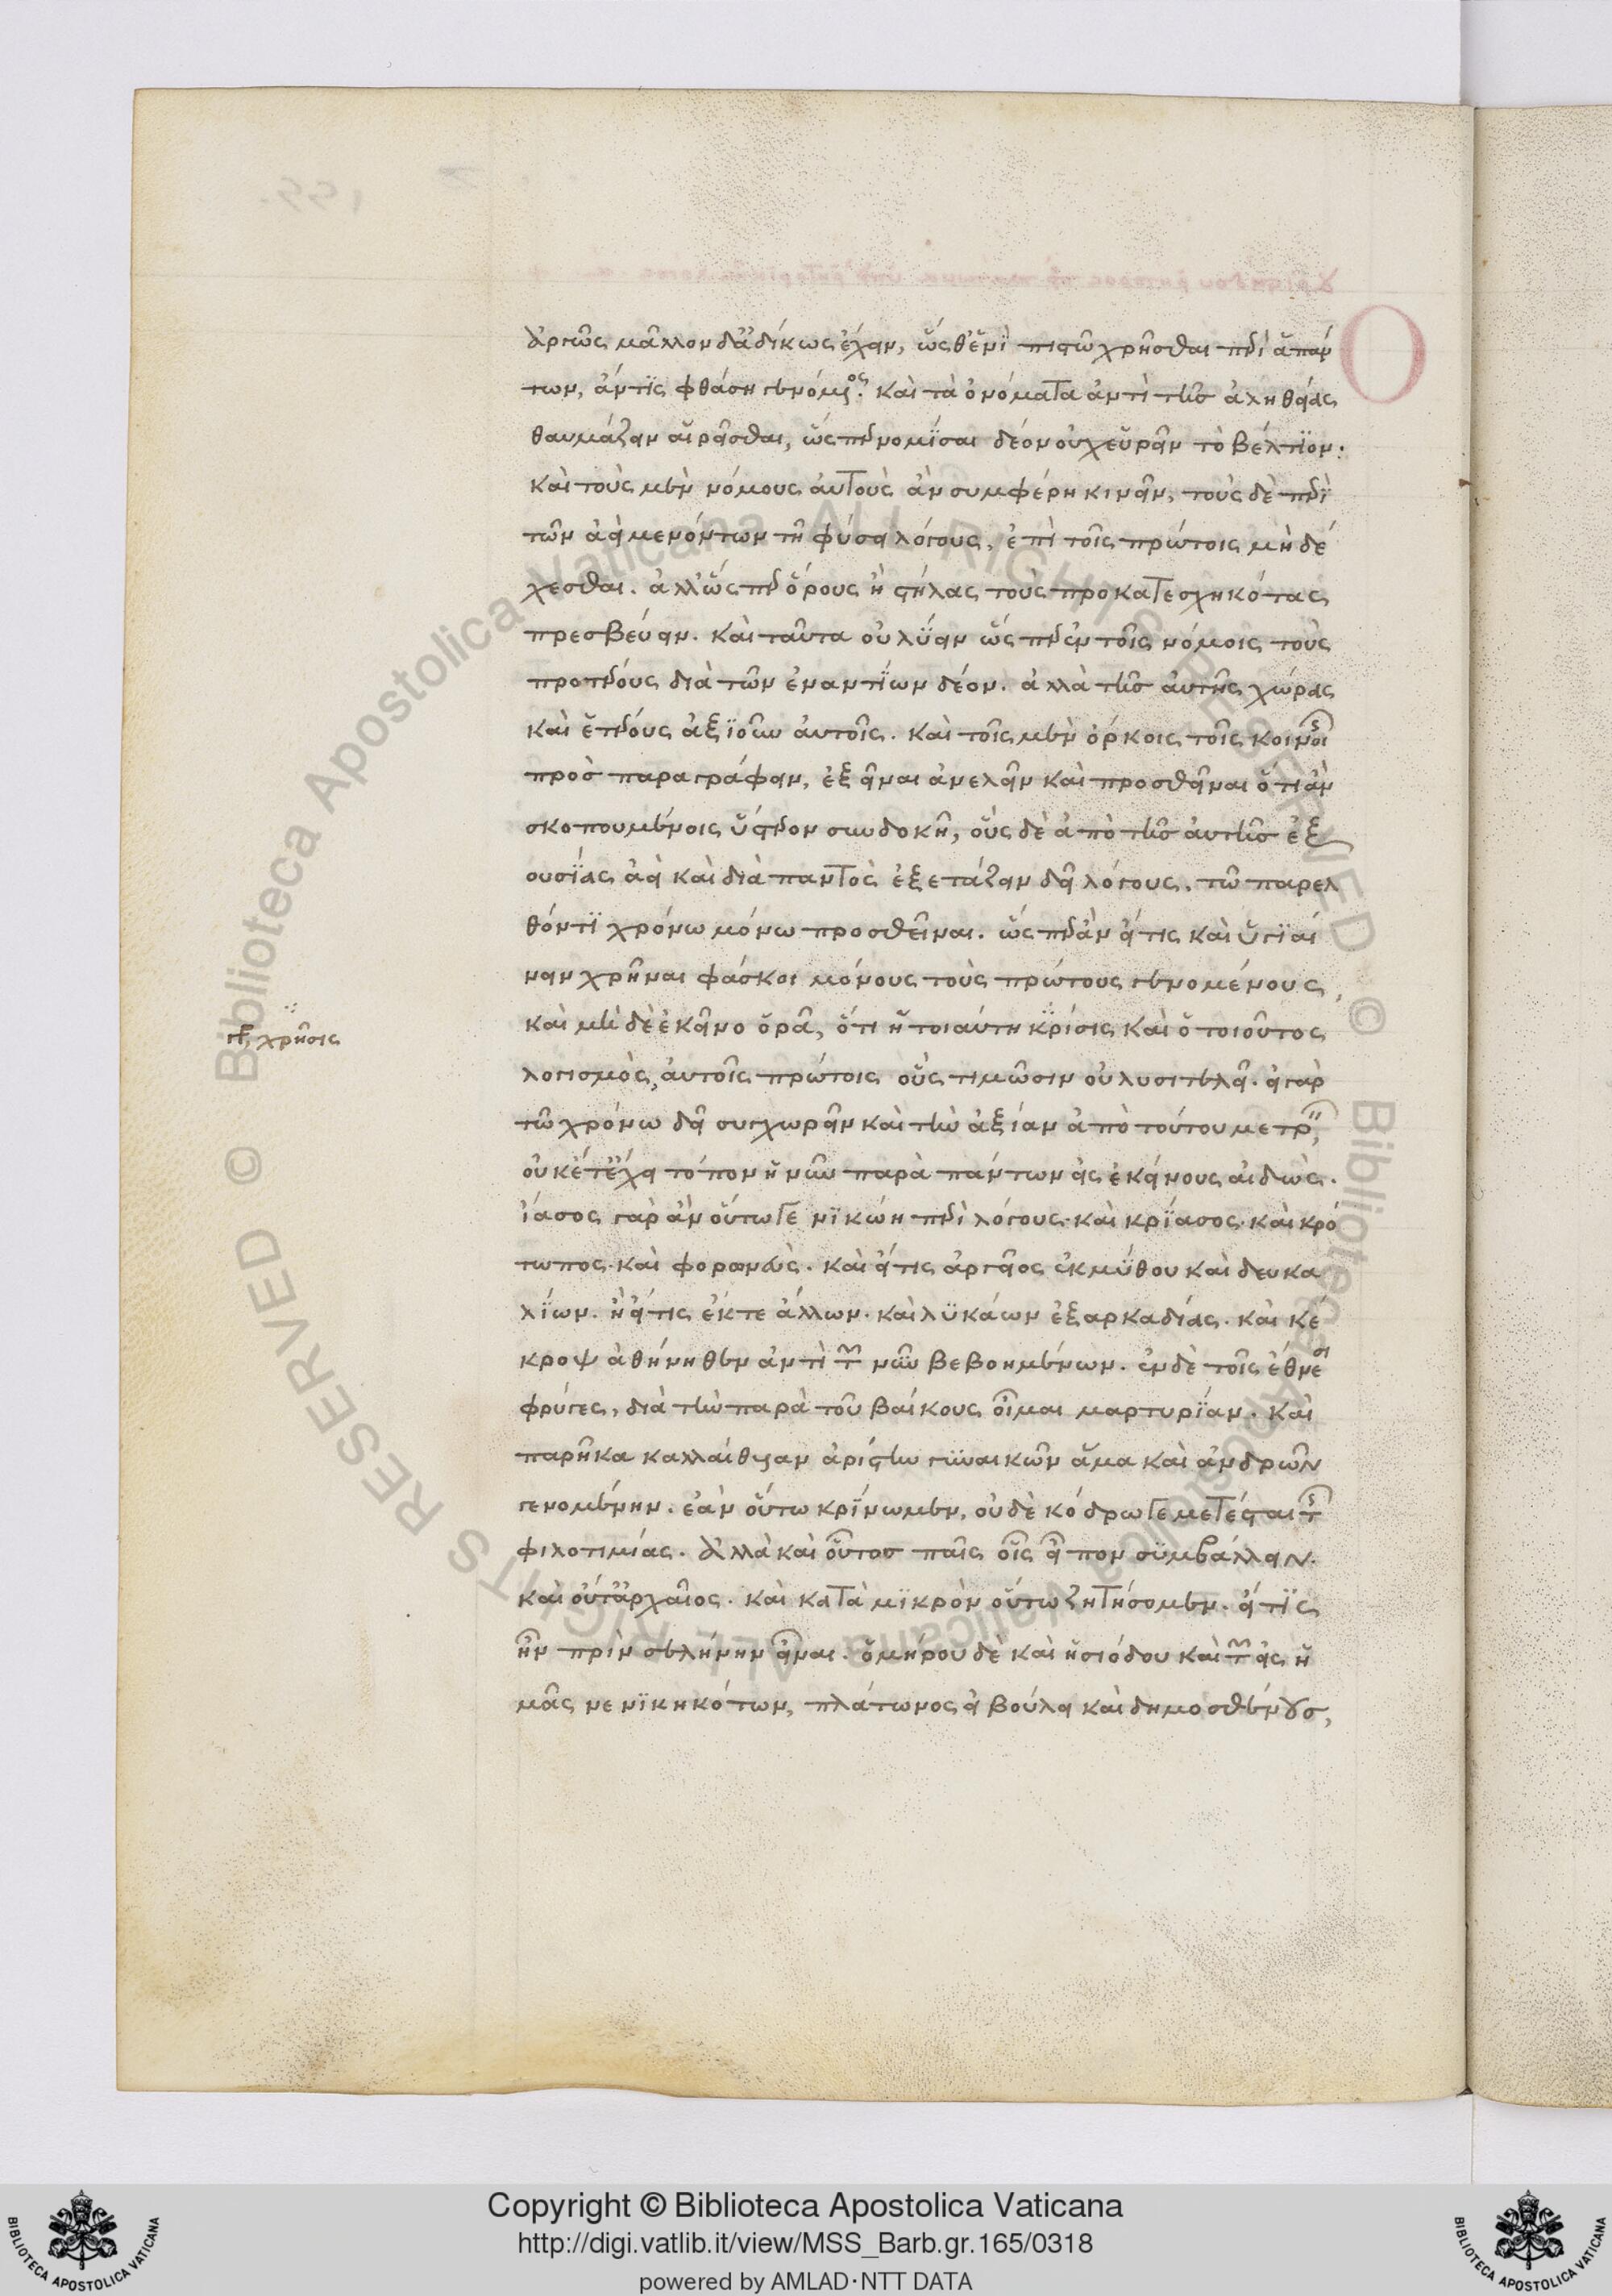 ἀργῶς μᾶλλον δ' ἀδίκως ἔχειν, ὥσθ' ἑνὶ πιστῷ χρῆσθαι περὶ ἁπάν
των, ἄν τις φθάσῃ γενόμενος. καὶ τὰ ὀνόματα ἀντὶ τῆς ἀληθείας
θαυμάζειν αἱρεῖσθαι, ὥσπερ νομίσαι δέον οὐχ εὑρεῖν τὸ βέλτιον:
καὶ τοὺς μὲν νόμους αὐτοὺς ἂν συμφέρῃ κινεῖν, τοὺς δὲ περὶ
τῶν ἀεὶ μενόντων τῇ φύσει λόγους, ἐπὶ τοῖς πρώτοις μὴ δέ
χεσθαι. ἀλλ' ὥσπερ ὅρους ἢ στήλας τοὺς προκατεσχηκότας
πρεσβεύειν. καὶ ταῦτα οὐ λύειν ὥσπερ ἐν τοῖς νόμοις τοὺς
προτέρους διὰ τῶν ἐναντίων δέον. ἀλλὰ τῆς αὐτῆς χώρας
καὶ ἑτέρους ἀξιοῦν αὐτοῖς. καὶ τοῖς μὲν ὅρκοις τοῖς κοινοῖς
προσπαραγράφειν, ἐξεῖναι ἀνελεῖν καὶ προσθεῖναι ὅ τι ἂν
σκοπουμένοις ὕστερον συνδοκῇ, οὓς δὲ ἀπὸ τῆς αὐτῆς ἐξ
ουσίας ἀεὶ καὶ διὰ παντὸς ἐξετάζειν δεῖ λόγους, τῷ παρελ
θόντι χρόνῳ μόνῳ προσθεῖναι. ὥσπερ ἂν εἴ τις καὶ ὑγιαί
νειν χρῆναι φάσκοι μόνους τοὺς πρώτους γενομένους,
γρ, χρῆσις
καὶ μὴ δὲ ἐκεῖνο ὁρᾶ, ὅτι ἡ τοιαύτη κρίσις καὶ ὁ τοιοῦτος
λογισμὸς, αὐτοῖς πρώτοις οὓς τιμῶσιν οὐ λυσιτελεῖ. εἰ γὰρ
τῷ χρόνῳ δεῖ συγχωρεῖν καὶ τὴν ἀξίαν ἀπὸ τούτου μετρεῖν,
οὐκέτ' ἔχει τόπον ἡ νῦν παρὰ πάντων εἰς ἐκείνους αἰδώς.
ἴασος γὰρ ἂν οὕτω γε νικῴη περὶ λόγους· καὶ κρίασος· καὶ κρό
τωπος· καὶ φορωνεὺς. καὶ εἴ τις ἀργεῖος ἐκ μύθου καὶ δευκα
λίων. ἢ εἴ τις ἔκ γε ἄλλων. καὶ λυκάων ἐξ αρκαδίας. καὶ κέ
κροψ ἀθήνηθεν ἀντὶ τῶν νῦν βεβοημένων. ἐν δὲ τοῖς ἔθνεσι
φρύγες, διὰ τὴν παρὰ τοῦ βαίκους οἶμαι μαρτυρίαν. καὶ
παρῆκα καλλαίθυιαν ἀρίστην γυναικῶν ἅμα καὶ ἀνδρῶν
γενομένην. ἐὰν οὕτω κρίνωμεν, οὐδὲ κόδρῳ γε μετέσται τῆς
φιλοτιμίας. ἀλλὰ καὶ οὗτος παῖς οἷς εἶπον συμβάλλειν.
καὶ οὔτ' ἀρχαῖος. καὶ κατὰ μικρὸν οὕτω ζητήσομεν. εἴ τις
ἦν πρὶν σελήνην εἶναι. ὁμήρου δὲ καὶ ἡσιόδου καὶ τῶν εἰς ἡ
μᾶς νενικηκότων, πλάτωνος εἰ βούλει καὶ δημοσθένους,
Copyright © Biblioteca Apostolica Vaticana
http://digi.vatlib.it/view/MSS_Barb.gr.165/0318
powered by AMLAD·NTT DATA